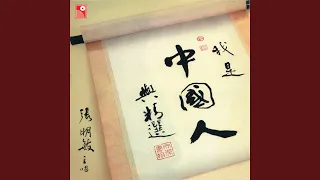 我是
中國人
與精選
張明敏主唱